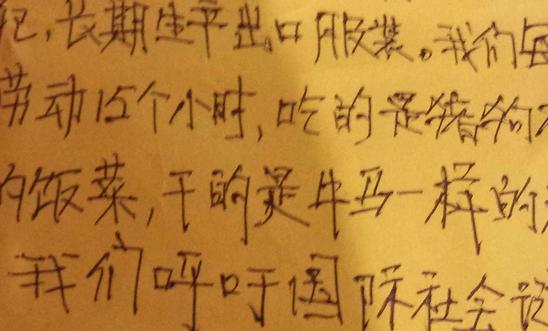 犯，长期生产出口服装。我们每
劳动15个小时，吃的是猪狗不
的饭菜，干的是牛马一样的
我们呼吁国际社会